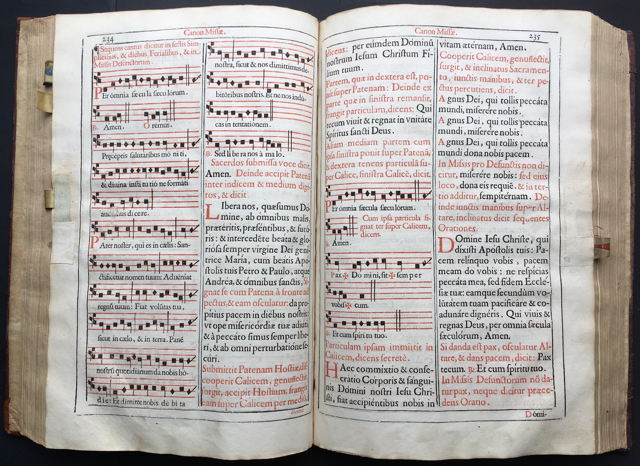 234
Canon Missæ.
Sequens cantus dicitur in festis Sim-
plicibus, & diebus Ferialibus, & in
Missis Defunctorum.
PEr omnia sęcula sęculorum.
R. Amen. Oremus.
Pręceptis salutaribus moniti,
& divina institutione formati
audemus dicere.
PAter noster, qui es in cælis: San-
ctificetur nomen tuum: Adveniat
regnū tuum: Fiat volūtas tua,
sicut in cælo, & in terra. Panē
nostrū quotidianum da nobis ho-
die: Et dimitte nobis debita
nostra, sicut & nos dimittimus de-
bitoribus nostris. Et ne nos indu-
cas in tentationem.
R. Sed libera nos à malo.
Sacerdos submissa voce dicit,
Amen. Deinde accipit Patenā
inter indicem & medium digi-
tos, & dicit
LIbera nos, quæsumus Do
mine, ab omnibus malis,
præteritis, præsentibus, & futu-
ris: & intercedente beata & glo-
riosa semper virgine Dei geni-
trice Maria, cum beatis Apo-
stolis tuis Petro & Paulo, atque
Andréa, & ómnibus sanctis, Si-
gnat se cum Patena à fronte ad
pectus, & eam osculatur: da pro-
pitius pacem in diebus nostris:
vt ope misericórdiæ tuæ adiuti,
& à peccato simus semper libe-
ri, & ab omni perturbatione se-
curi.
Submittit Patenam Hostiæ, dis-
cooperit Calicem, genuflectit,
surgit, accipit Hostium, frangit
eam super Calicem per mediū,
Canon Missæ.
235
dicens: per eúmdem Dóminū
nostrum Iesum Christum Fi-
lium tuum.
Partem, quæ in dextera est, po-
nit super Patenam: Deinde ex
parte quæ in sinistra remansit,
frangit particulam, dicens: Qui
tecum viuit & regnat in vnitáte
Spiritus sancti Deus.
Aliam mediam partem cum
ipsa sinistra ponit super Patenā,
& dextera tenens particulā su-
per Calicē, sinistra Calicē, dicit.
PEr ómnia sæcula sæculorum.
Cum ipsa particula si-
gnat ter super Calicem,
dicens.
R. Amen.
Pax ✠ Domini, sit ✠ semper
vobis ✠ cum.
R. Et cum spiritu tuo.
Particulam ipsam immittit in
Calicem, dicens secretè.
HAec commixtio & conse-
crátio Corporis & sángui-
nis Dómini nostri Iesu Chri-
sti, fiat accipiéntibus nobis in
vitam ætérnam, Amen.
Cooperit Calicem, genuflectit,
surgit, & inclinatus Sacramen-
to, iunctis manibus, & ter pe-
ctus percutiens, dicit.
Agnus Dei, qui tollis peccáta
mundi, miserére nobis.
Agnus Dei, qui tollis peccáta
mundi, miserére nobis.
Agnus Dei, qui tollis peccáta
mundi dona nobis pacem.
In Missis pro Defunctis non di-
citur, miserére nobis: sed eius
loco, dona eis requiē. & in ter-
tio additur, sempitérnam. De-
inde iunctis manibus super Al-
tare, inclinatus dicit sequentes
Orationes.
DOmine Iesu Christe, qui
dixisti Apóstolis tuis: Pa-
cem relínquo vobis, pacem
meam do vobis: ne respicias
peccáta mea, sed fidem Ecclé-
siæ tuæ: eamque secundùm vo-
luntátem tuam pacificáre & co-
adunáre dignéris. Qui viuis &
regnas Deus, per omnia sæcula
sæculórum, Amen.
Si danda est pax, osculatur Al-
tare, & dans pacem, dicit: Pax
tecum. R. Et cum spiritu tuo.
In Missis Defunctorum nō da-
tur pax, neque dicitur præce-
dens Oratio.
Dómi-